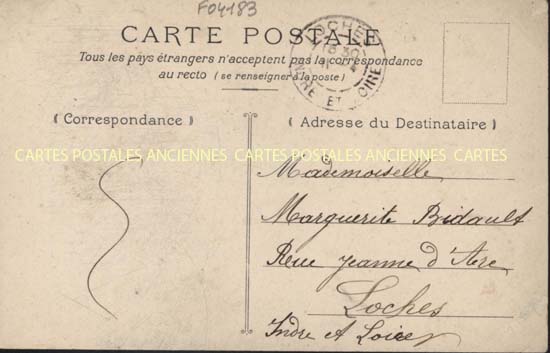 F04183
CARTE POSTALE
Tous les pays étrangers n'acceptent pas la correspondance
au recto (se renseigner à la poste)
LOCHES
18 30
4
INDRE ET LOIRE
( Correspondance )
( Adresse du Destinataire )
CARTES POSTALES ANCIENNES CARTES POSTALES ANCIENNES CARTES
Mademoiselle
Marguerite Bidault
Rue Jeanne d'Arc
Loches
Indre et Loire